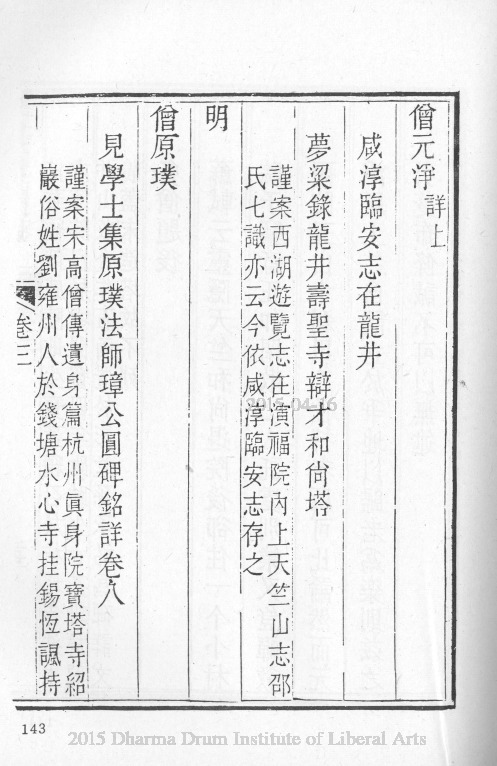 僧元凈詳上
咸淳臨安志在龍井
夢粱錄龍井壽聖寺辯才和尙塔
謹案西湖遊覽志在演福院內上天竺山志邵
氏七識亦云今依咸淳臨安志存之
明
僧原璞
見學士集原璞法師璋公圓碑銘詳卷八
謹案宋高僧傳遺身篇杭州眞身院寶塔寺紹
巖俗姓劉雍州人於錢塘水心寺挂錫恆諷持
卷三
143
2015-04-16
2015 Dharma Drum Institute of Liberal Arts